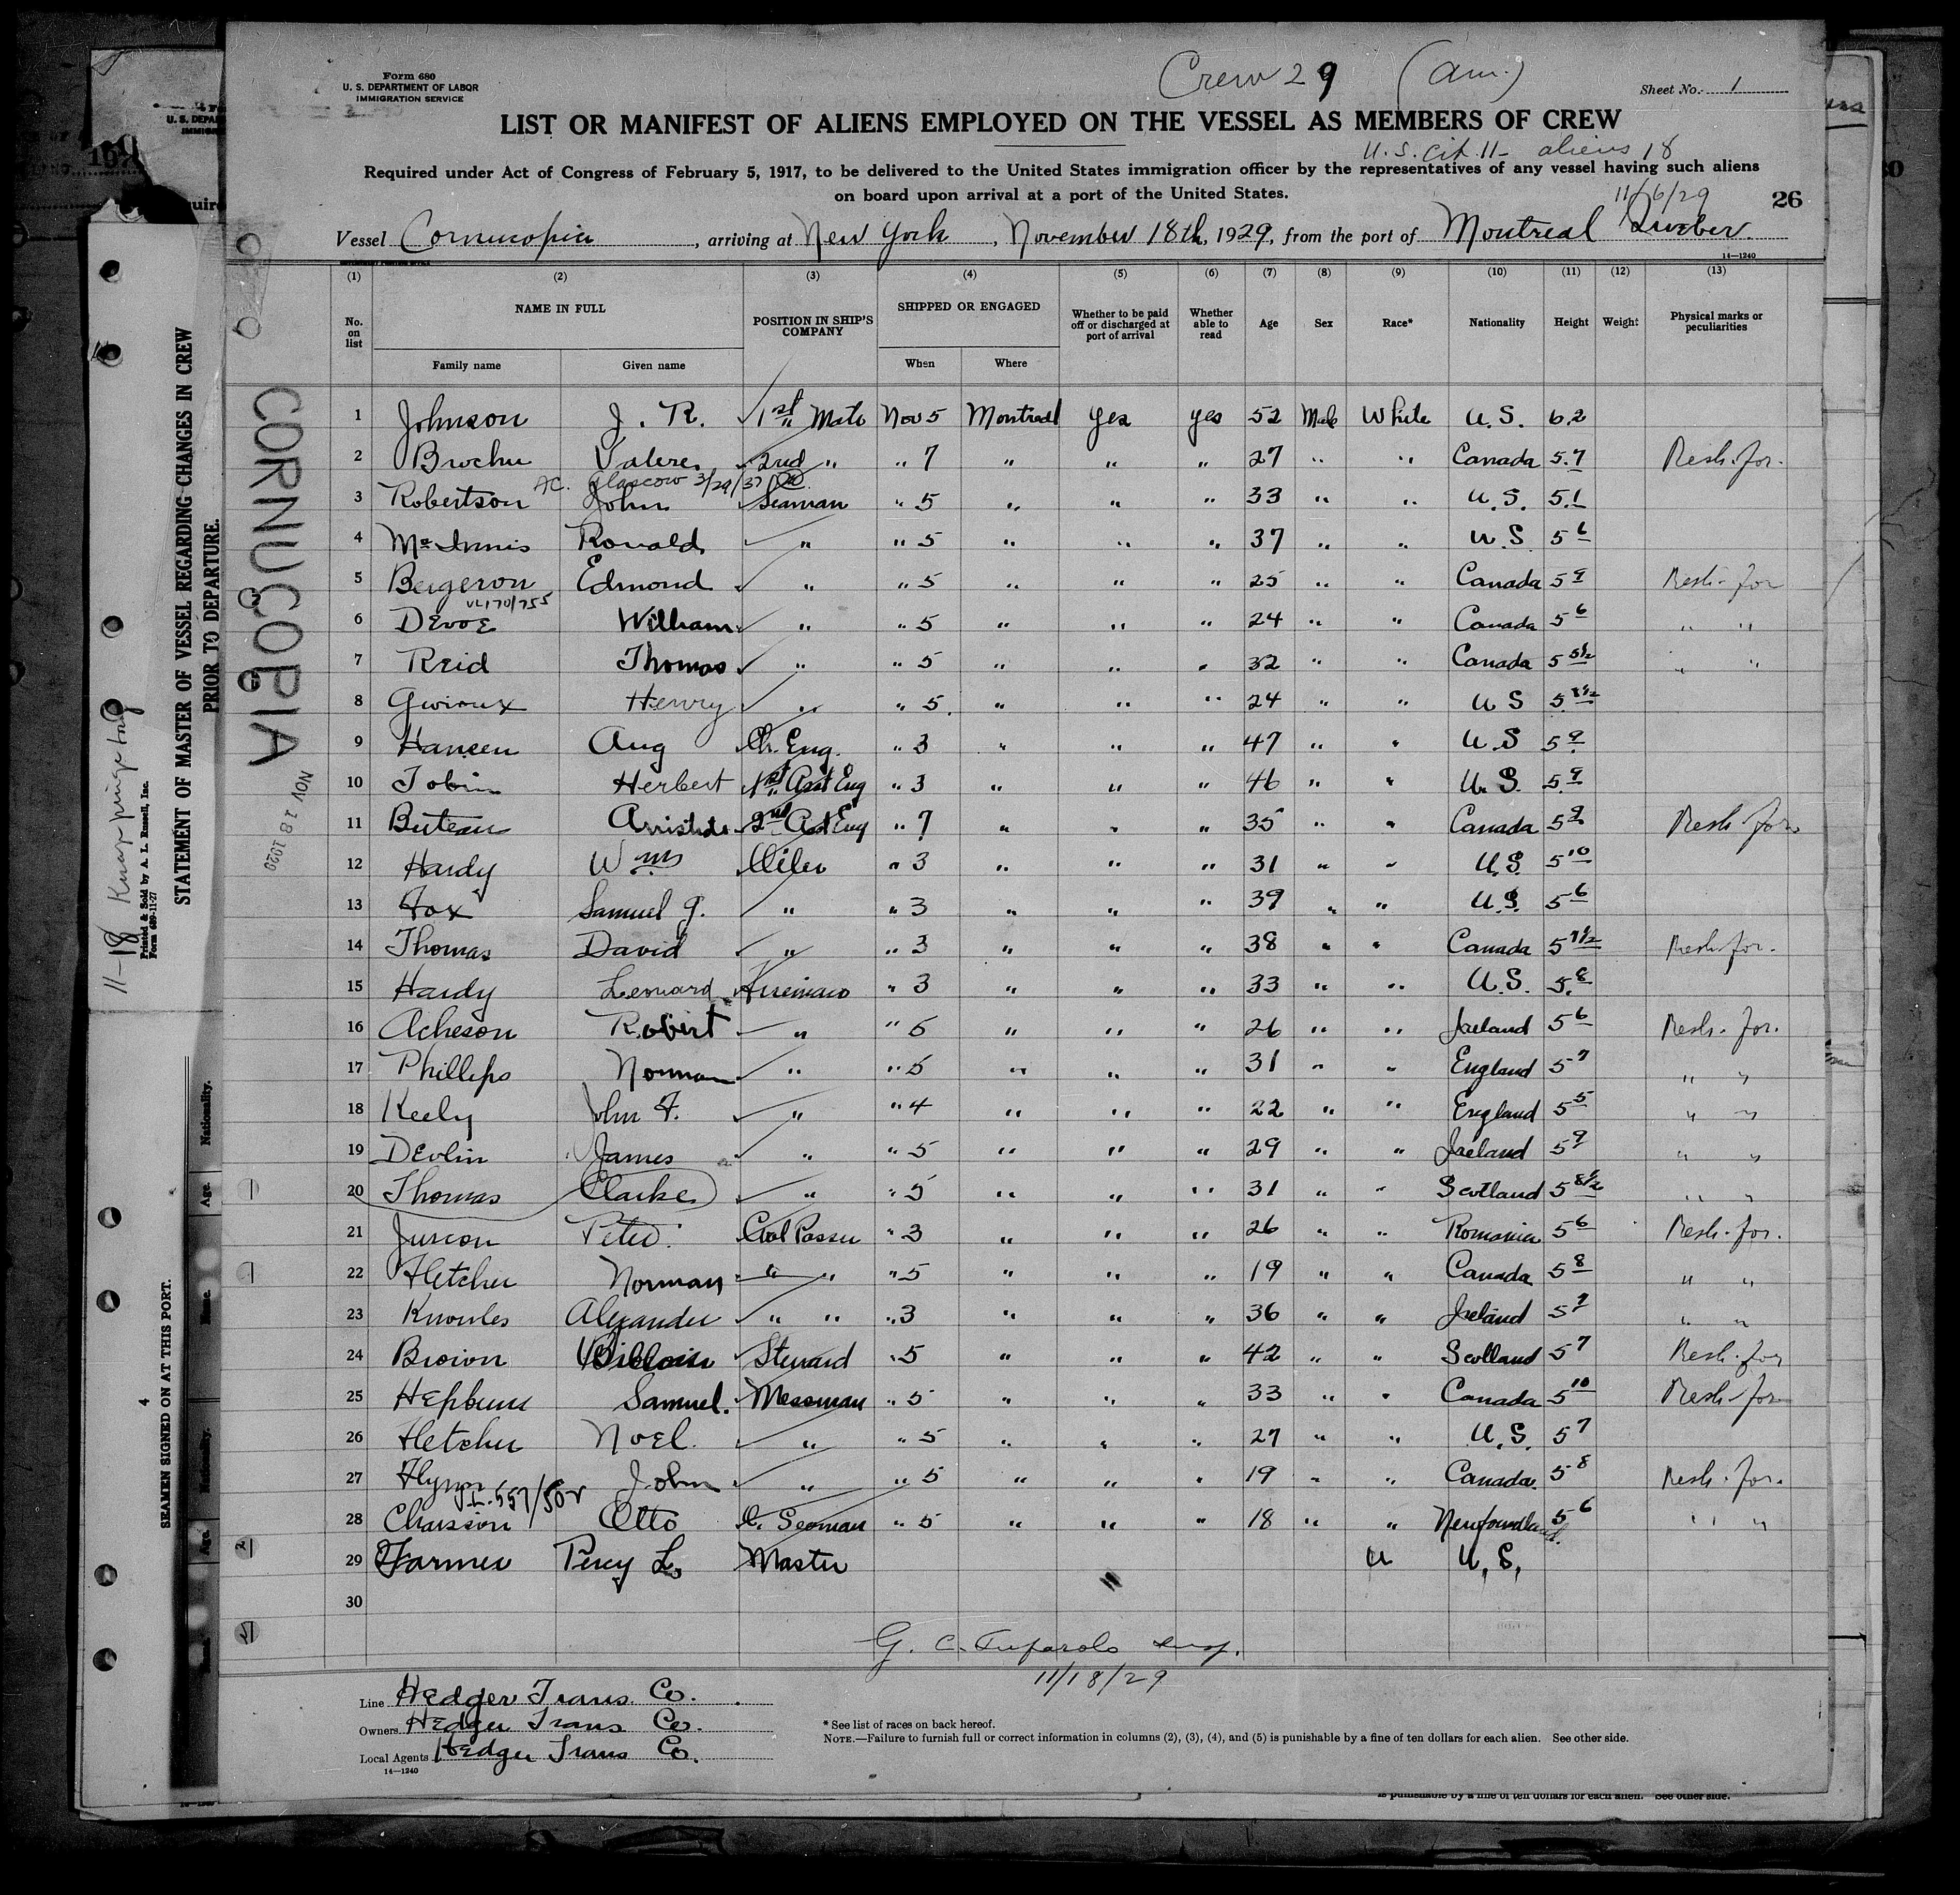 Form 680
U. S. DEPARTMENT OF LABOR
IMMIGRATION SERVICE
Crew 29 (Am.)
Sheet No. 1
LIST OR MANIFEST OF ALIENS EMPLOYED ON THE VESSEL AS MEMBERS OF CREW
U.S. cit. 11 - aliens 18
Required under Act of Congress of February 5, 1917, to be delivered to the United States immigration officer by the representatives of any vessel having such aliens
on board upon arrival at a port of the United States.
11/6/29
26
Vessel Cornucopia, arriving at New York, November 18th, 1929, from the port of Montreal Quebec.
14—1240
(1) (2) (3) (4) (5) (6) (7) (8) (9) (10) (11) (12) (13)
No. on list NAME IN FULL Family name Given name POSITION IN SHIP'S COMPANY SHIPPED OR ENGAGED When Where Whether to be paid off or discharged at port of arrival Whether able to read Age Sex Race* Nationality Height Weight Physical marks or peculiarities
1 Johnson J. R. 1st Mate Nov 5 Montreal Yes yes 52 Male White U.S. 6.2
2 Brochu Valere 2nd " " 7 " " " 27 " " Canada 5.7 Resh. for.
Glascow 3/29/37
3 Robertson John Seaman " 5 " " " 33 " " U.S. 5.1
4 McInnis Ronald " " 5 " " " 37 " " U.S 5 6
5 Bergeron Edmond " " 5 " " " 25 " " Canada 5 9 Resh. for
6 Devoe William " " 5 " " " 24 " " Canada 5 6 " "
7 Reid Thomas " " 5 " " " 32 " " Canada 5 5½ " "
8 Henry " " 5 " " " 24 " " U S
9 Hansen Aug Ch. Eng. " 3 " " " 47 " " U.S 5 9
10 Tobin Herbert 1st Asst Eng " 3 " " " 46 " " U.S. 5 9
11 Buteau Aristide 2nd Asst Eng " 7 " " " 35 " " Canada 5 9 Resh for
12 Hardy Wm Oiler " 3 " " " 31 " " U.S. 5 10
13 Fox Samuel J. " " 3 " " " 39 " " U.S. 5 6
14 Thomas David " " 3 " " " 38 " " Canada 5 7½ Resh for.
15 Hardy Leonard Fireman " 3 " " " 33 " " U.S. 5.8
16 Acheson Robert " " 5 " " " 26 " " Ireland 5 6 Resh. for.
17 Phillips Norman " " 5 " " " 31 " " England 5 7 " "
18 Keely John F. " " 4 " " " 22 " " England 5 5 " "
19 Devlin James " " 5 " " " 29 " " Ireland 5 9 " "
20 Thomas Clarke " " 5 " " " 31 " " Scotland 5 8½ " "
21 Juscon Peter Coal Passer " 3 " " " 26 " " Romania 5 6 Resh. for.
22 Fletcher Norman " " " 5 " " " 19 " " Canada 5 8 " "
23 Knowles Alexander " " " 3 " " " 36 " " Ireland 5 7 " "
24 Brown William Steward " 5 " " " 42 " " Scotland 5 7 Resh. for
25 Hepburn Samuel. Messman " 5 " " " 33 " " Canada 5 10 Resh for
26 Fletcher Noel. " " 5 " " " 27 " " U.S. 5 7
27 Flynn John " " 5 " " " 19 " " Canada. 5 8 Resh. for.
28 Chaisson Otto O. Seaman " 5 " " " 18 " " Newfoundland. 5 6 " "
29 Farmer Percy L. Master U.S.
30
11/18/29
Line Hedger Trans. Co.
Owners Hedger Trans Co.
Local Agents Hedger Trans Co.
14—1240
* See list of races on back hereof.
NOTE.—Failure to furnish full or correct information in columns (2), (3), (4), and (5) is punishable by a fine of ten dollars for each alien. See other side.
is punishable by a fine of ten dollars for each alien. See other side.
CORNUCOPIA
NOV 18 1929
STATEMENT OF MASTER OF VESSEL REGARDING CHANGES IN CREW
PRIOR TO DEPARTURE.
Printed & Sold by A. L. Russell, Inc.
Form 689-11-27
11-18
4
SEAMEN SIGNED ON AT THIS PORT.
Nationality.
Age.
Name.
Nationality.
Age.